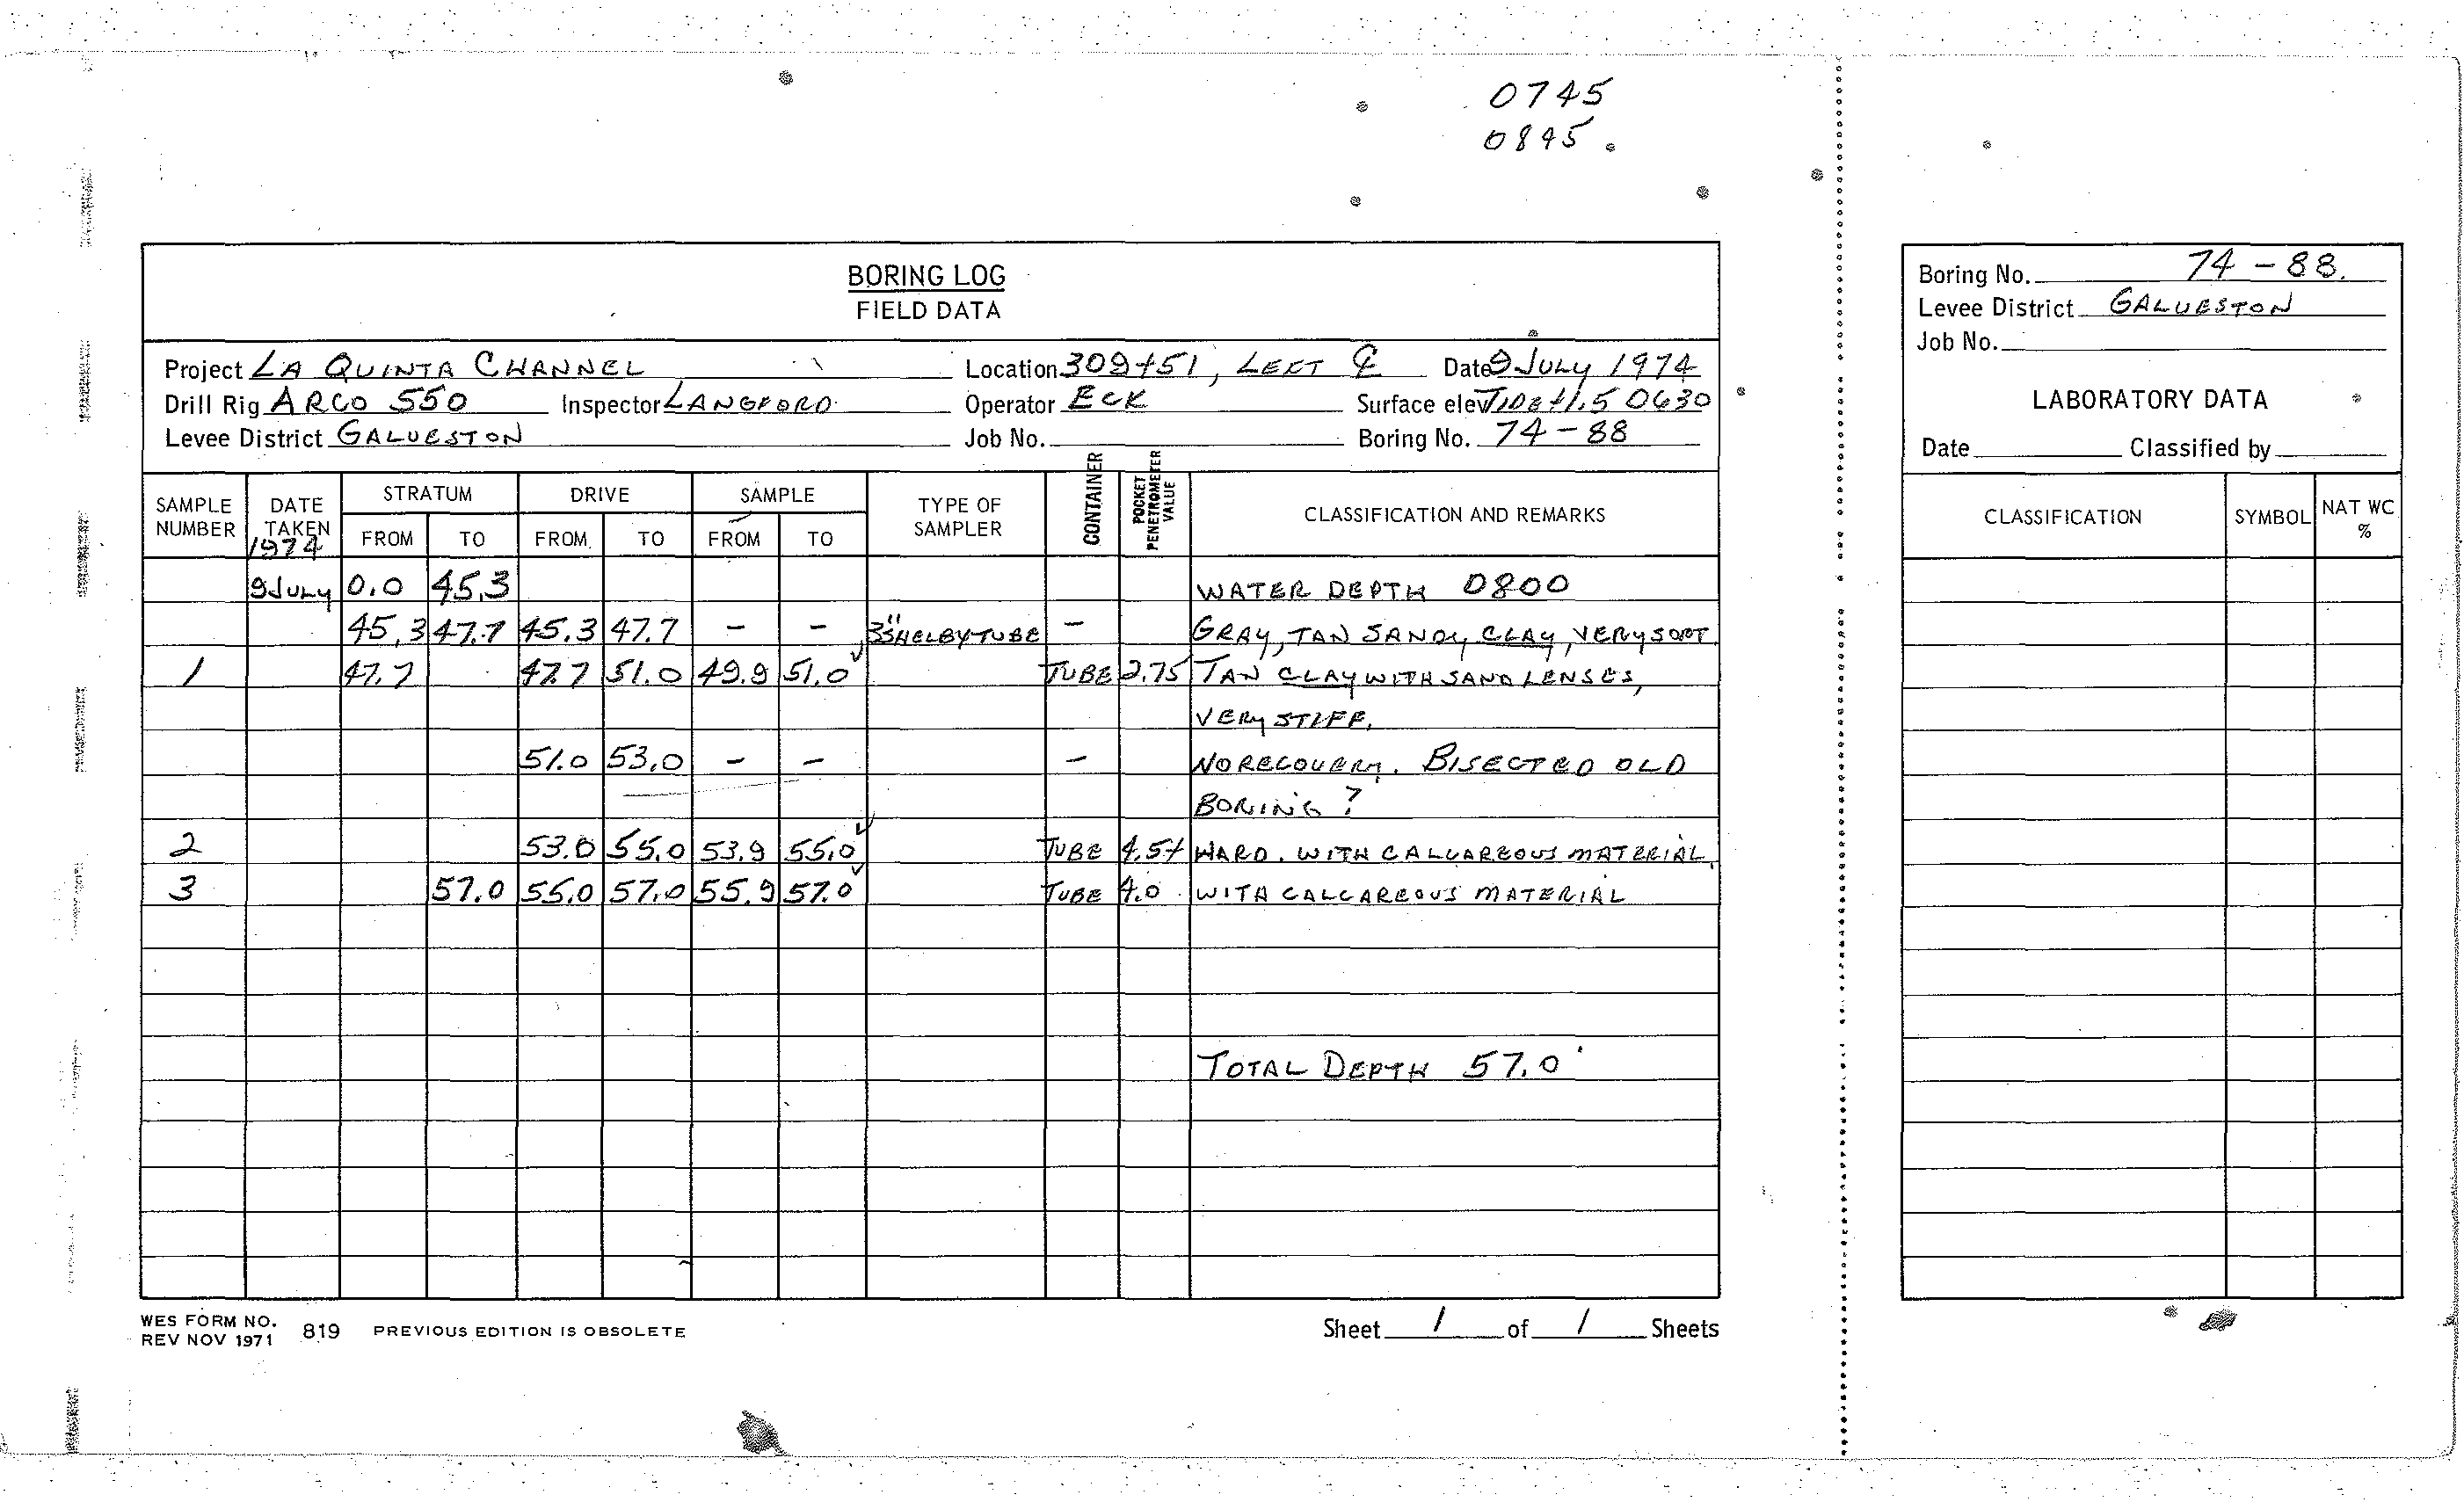 0745
0845.
BORING LOG
FIELD DATA
Project LA QUINTA CHANNEL Location 309+51, LEFT ℄ Date 9 JULY 1974
Drill Rig ARCO 550 Inspector LANGFORD Operator ECK Surface elev TIDE +1.5 0630
Levee District GALVESTON Job No. Boring No. 74-88
SAMPLE NUMBER DATE TAKEN 1974 STRATUM FROM TO DRIVE FROM TO SAMPLE FROM TO TYPE OF SAMPLER CONTAINER POCKET PENETROMETER VALUE CLASSIFICATION AND REMARKS
9 JULY 0.0 45.3 WATER DEPTH 0800
45.3 47.7 45.3 47.7 - - 3" SHELBY TUBE - GRAY, TAN SANDY CLAY, VERY SOFT
1 47.7 47.7 51.0 49.9 51.0 TUBE 2.75 TAN CLAY WITH SAND LENSES,
VERY STIFF.
51.0 53.0 - - - NO RECOVERY. BISECTED OLD
BORING ?
2 53.0 55.0 53.9 55.0 TUBE 4.5+ HARD. WITH CALCAREOUS MATERIAL.
3 57.0 55.0 57.0 55.9 57.0 TUBE 4.0 WITH CALCAREOUS MATERIAL
TOTAL DEPTH 57.0'
WES FORM NO. 819 PREVIOUS EDITION IS OBSOLETE
REV NOV 1971
Sheet 1 of 1 Sheets
Boring No. 74-88.
Levee District GALVESTON
Job No.
LABORATORY DATA
Date Classified by
CLASSIFICATION SYMBOL NAT WC %